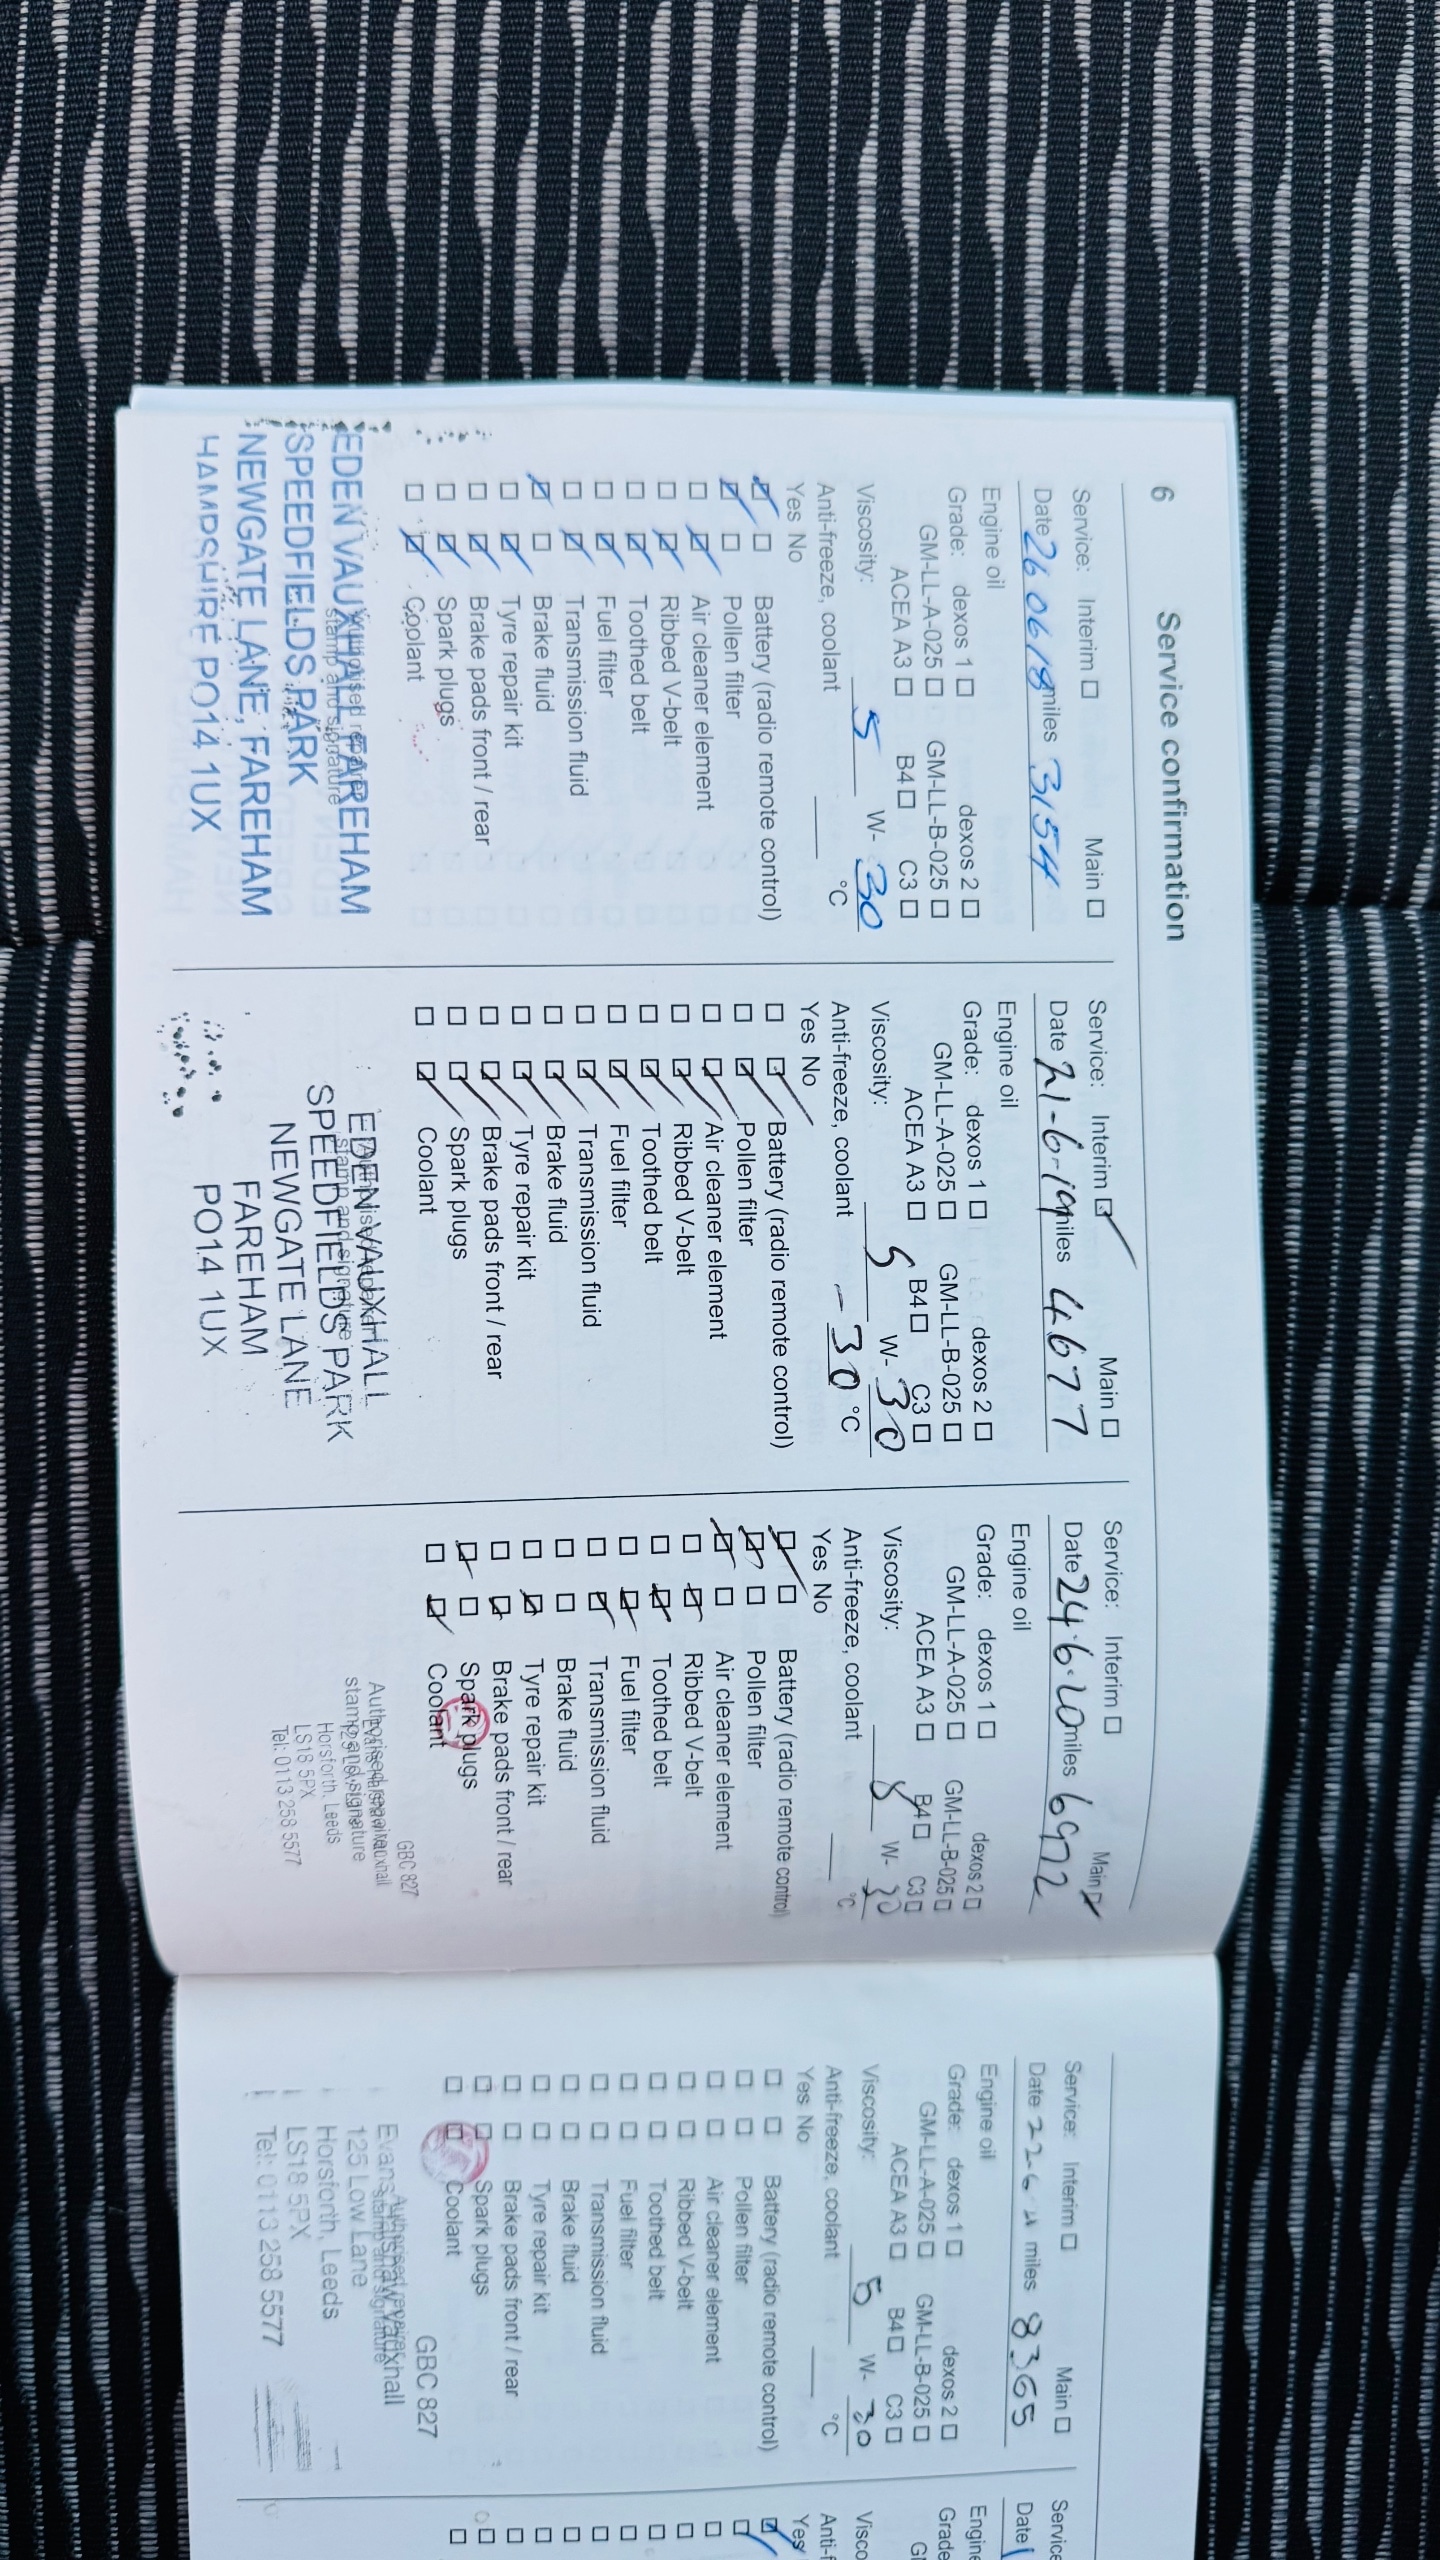 6 Service confirmation
Service: Interim ☐ Main ☐
Date 26 06 18 miles 3154
Engine oil
Grade: dexos 1 ☐ dexos 2 ☐
GM-LL-A-025 ☐ GM-LL-B-025 ☐
ACEA A3 ☐ B4 ☐ C3 ☐
Viscosity: 5 W- 30
Anti-freeze, coolant °C
Yes No
☑ ☐ Battery (radio remote control)
☑ ☐ Pollen filter
☐ ☑ Air cleaner element
☐ ☑ Ribbed V-belt
☐ ☑ Toothed belt
☐ ☑ Fuel filter
☐ ☑ Transmission fluid
☑ ☐ Brake fluid
☐ ☑ Tyre repair kit
☐ ☑ Brake pads front / rear
☐ ☑ Spark plugs
☐ ☑ Coolant
Authorised repairer
stamp and signature
EDEN VAUXHALL FAREHAM
SPEEDFIELDS PARK
NEWGATE LANE, FAREHAM
HAMPSHIRE PO14 1UX
Service: Interim ☑ Main ☐
Date 21-6-19 miles 4677
Engine oil
Grade: dexos 1 ☐ dexos 2 ☐
GM-LL-A-025 ☐ GM-LL-B-025 ☐
ACEA A3 ☐ B4 ☐ C3 ☐
Viscosity: 5 W- 30
Anti-freeze, coolant -30 °C
Yes No
☐ ☑ Battery (radio remote control)
☐ ☑ Pollen filter
☐ ☑ Air cleaner element
☐ ☑ Ribbed V-belt
☐ ☑ Toothed belt
☐ ☑ Fuel filter
☐ ☑ Transmission fluid
☐ ☑ Brake fluid
☐ ☑ Tyre repair kit
☐ ☑ Brake pads front / rear
☐ ☑ Spark plugs
☐ ☑ Coolant
Authorised repairer
stamp and signature
EDEN VAUXHALL
SPEEDFIELDS PARK
NEWGATE LANE
FAREHAM
PO14 1UX
Service: Interim ☐ Main ☑
Date 24.6.20 miles 6972
Engine oil
Grade: dexos 1 ☐ dexos 2 ☐
GM-LL-A-025 ☐ GM-LL-B-025 ☐
ACEA A3 ☐ B4 ☐ C3 ☐
Viscosity: 5 W- 30
Anti-freeze, coolant °C
Yes No
☑ ☐ Battery (radio remote control)
☑ ☐ Pollen filter
☑ ☐ Air cleaner element
☐ ☑ Ribbed V-belt
☐ ☑ Toothed belt
☐ ☑ Fuel filter
☐ ☑ Transmission fluid
☐ ☐ Brake fluid
☐ ☑ Tyre repair kit
☐ ☑ Brake pads front / rear
☑ ☐ Spark plugs
☐ ☑ Coolant
GBC 827
Authorised repairer
stamp and signature
Horsforth, Leeds
LS18 5PX
Tel: 0113 258 5577
Service: Interim ☐ Main ☐
Date 22-6 miles 8365
Engine oil
Grade: dexos 1 ☐ dexos 2 ☐
GM-LL-A-025 ☐ GM-LL-B-025 ☐
ACEA A3 ☐ B4 ☐ C3 ☐
Viscosity: 5 W- 30
Anti-freeze, coolant °C
Yes No
☐ ☐ Battery (radio remote control)
☐ ☐ Pollen filter
☐ ☐ Air cleaner element
☐ ☐ Ribbed V-belt
☐ ☐ Toothed belt
☐ ☐ Fuel filter
☐ ☐ Transmission fluid
☐ ☐ Brake fluid
☐ ☐ Tyre repair kit
☐ ☐ Brake pads front / rear
☐ ☐ Spark plugs
☐ ☐ Coolant
GBC 827
Authorised repairer
stamp and signature
Evans Halshaw Vauxhall
125 Low Lane
Horsforth, Leeds
LS18 5PX
Tel: 0113 258 5577
Service
Date
Engine
Grade
Visco
Anti-f
Yes